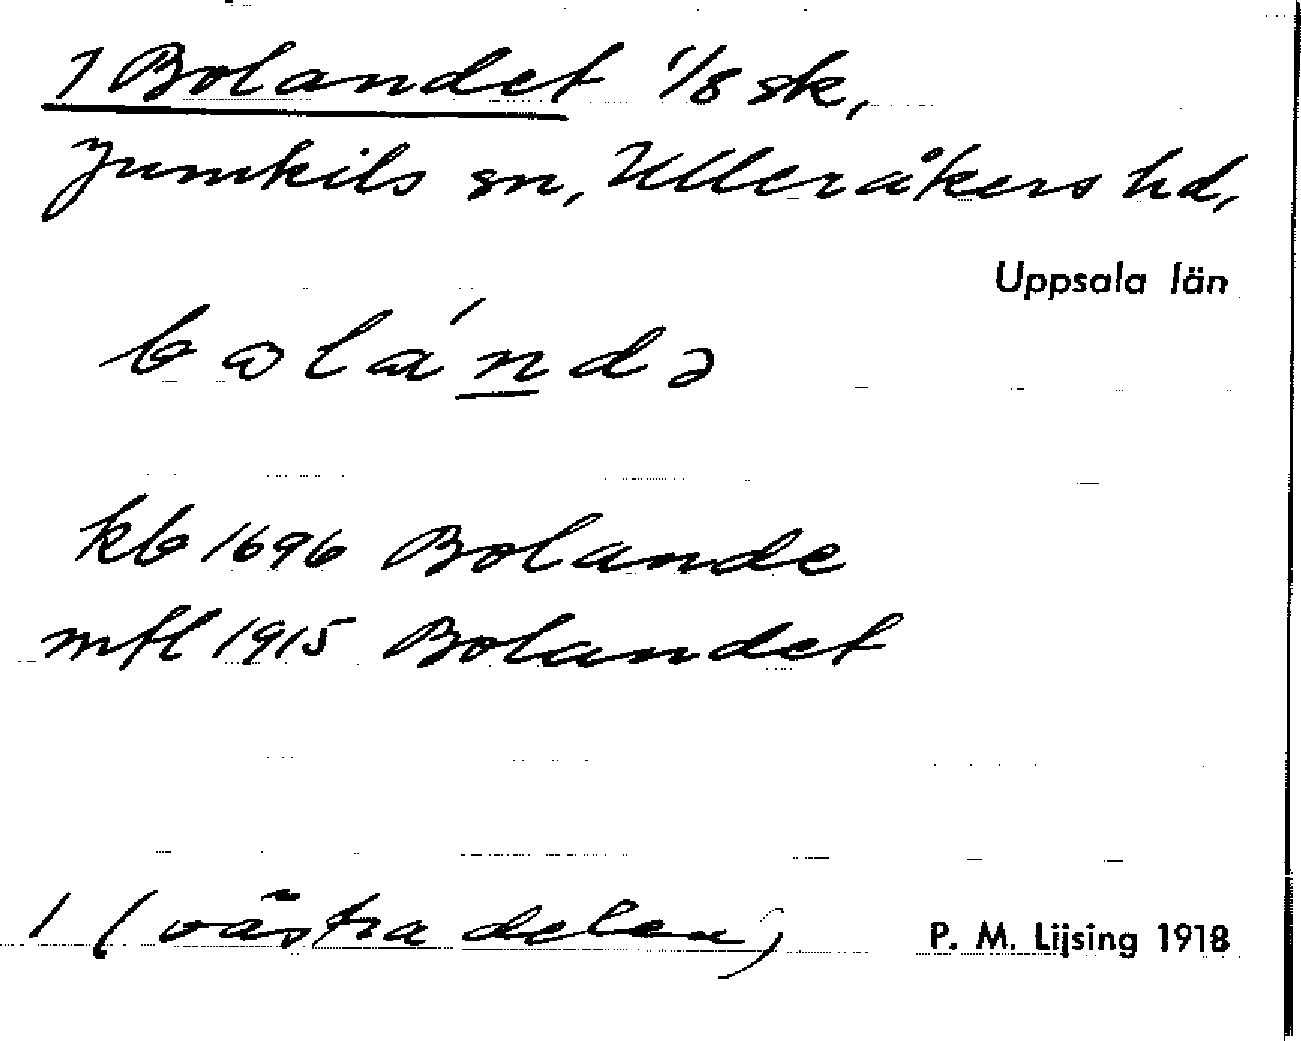 1 Bolandet 1/8 sk,
Jumkils sn, Ulleråkers hd,
Uppsala län
bolándə
kb 1696 Bolande
mfl 1915 Bolandet
1 (västra delen)
P. M. Lijsing 1918